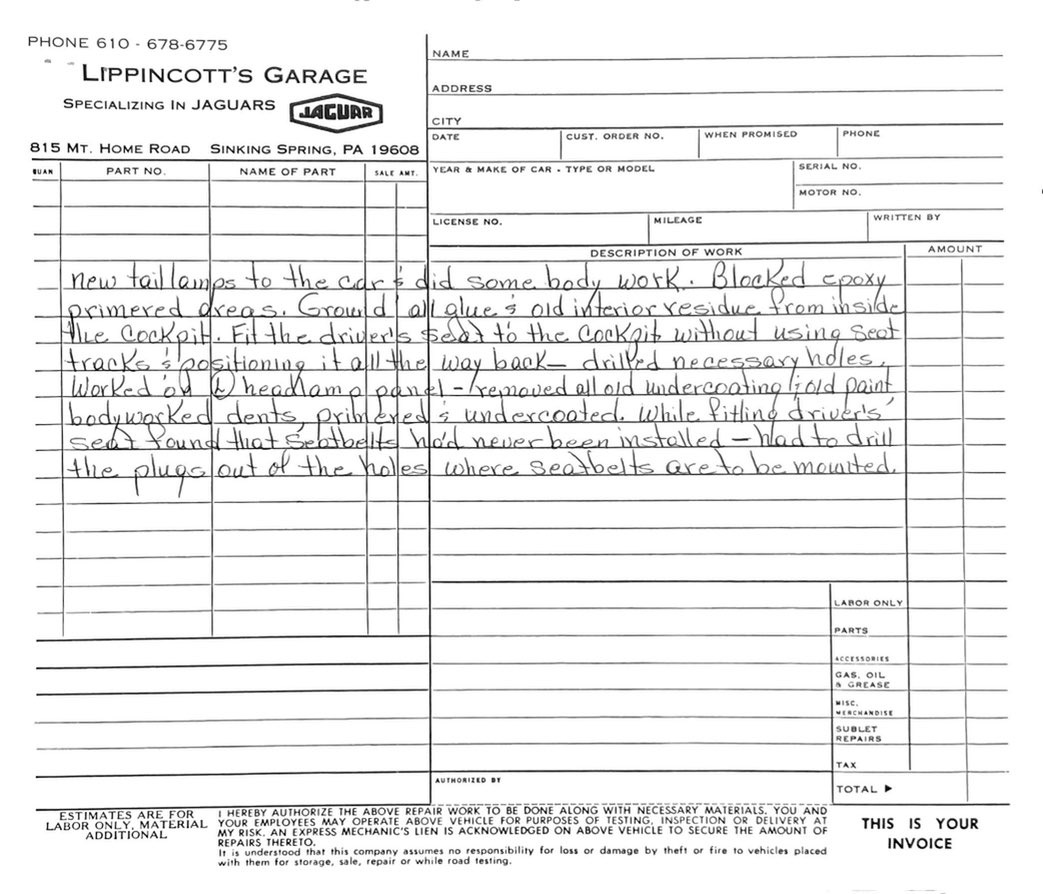 PHONE 610 - 678-6775
LIPPINCOTT'S GARAGE
SPECIALIZING IN JAGUARS JAGUAR
815 MT. HOME ROAD SINKING SPRING, PA 19608
NAME
ADDRESS
CITY
DATE CUST. ORDER NO. WHEN PROMISED PHONE
QUAN PART NO. NAME OF PART SALE AMT.
YEAR & MAKE OF CAR - TYPE OR MODEL SERIAL NO.
MOTOR NO.
LICENSE NO. MILEAGE WRITTEN BY
DESCRIPTION OF WORK AMOUNT
new tail lamps to the car & did some body work. Blocked epoxy
primered areas. Ground all glue & old interior residue from inside
the cockpit. Fit the driver's seat to the cockpit without using seat
tracks & positioning it all the way back — drilled necessary holes.
Worked on Ⓛ headlamp panel - removed all old undercoating & old paint
bodyworked dents, primered & undercoated. While fitting driver's
seat found that seatbelts had never been installed — had to drill
the plugs out of the holes where seatbelts are to be mounted.
LABOR ONLY
PARTS
ACCESSORIES
GAS, OIL
& GREASE
MISC.
MERCHANDISE
SUBLET
REPAIRS
TAX
AUTHORIZED BY
TOTAL ▶
ESTIMATES ARE FOR
LABOR ONLY, MATERIAL
ADDITIONAL
I HEREBY AUTHORIZE THE ABOVE REPAIR WORK TO BE DONE ALONG WITH NECESSARY MATERIALS. YOU AND
YOUR EMPLOYEES MAY OPERATE ABOVE VEHICLE FOR PURPOSES OF TESTING, INSPECTION OR DELIVERY AT
MY RISK. AN EXPRESS MECHANIC'S LIEN IS ACKNOWLEDGED ON ABOVE VEHICLE TO SECURE THE AMOUNT OF
REPAIRS THERETO.
It is understood that this company assumes no responsibility for loss or damage by theft or fire to vehicles placed
with them for storage, sale, repair or while road testing.
THIS IS YOUR
INVOICE